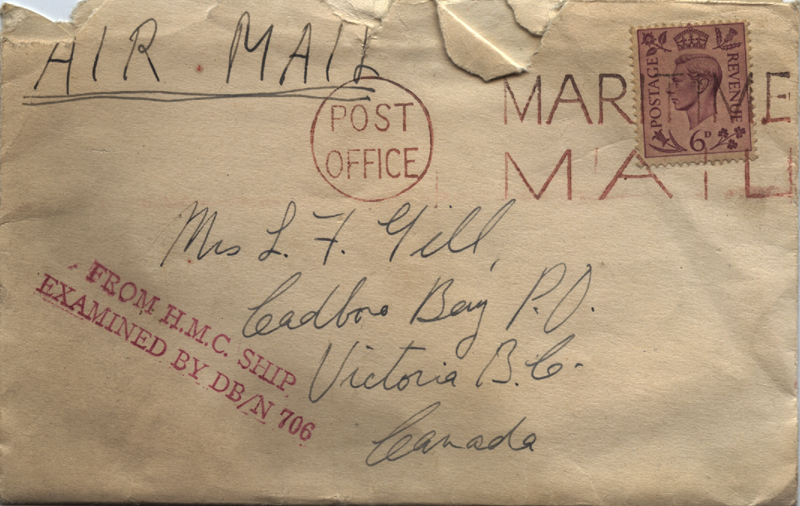 AIR MAIL
POST
OFFICE
MARITIME
MAIL
POSTAGE
REVENUE
6D
Mrs L. F. Gill,
Cadboro Bay P.O.
Victoria B.C.
Canada
FROM H.M.C. SHIP
EXAMINED BY DB/N 706